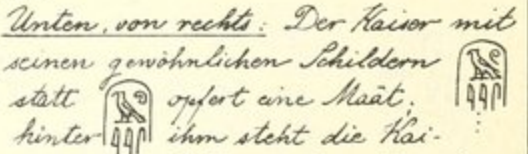 Unten, von rechts: Der Kaiser mit
seinen gewöhnlichen Schildern
statt opfert eine Maät,
hinter ihm steht die Kai-